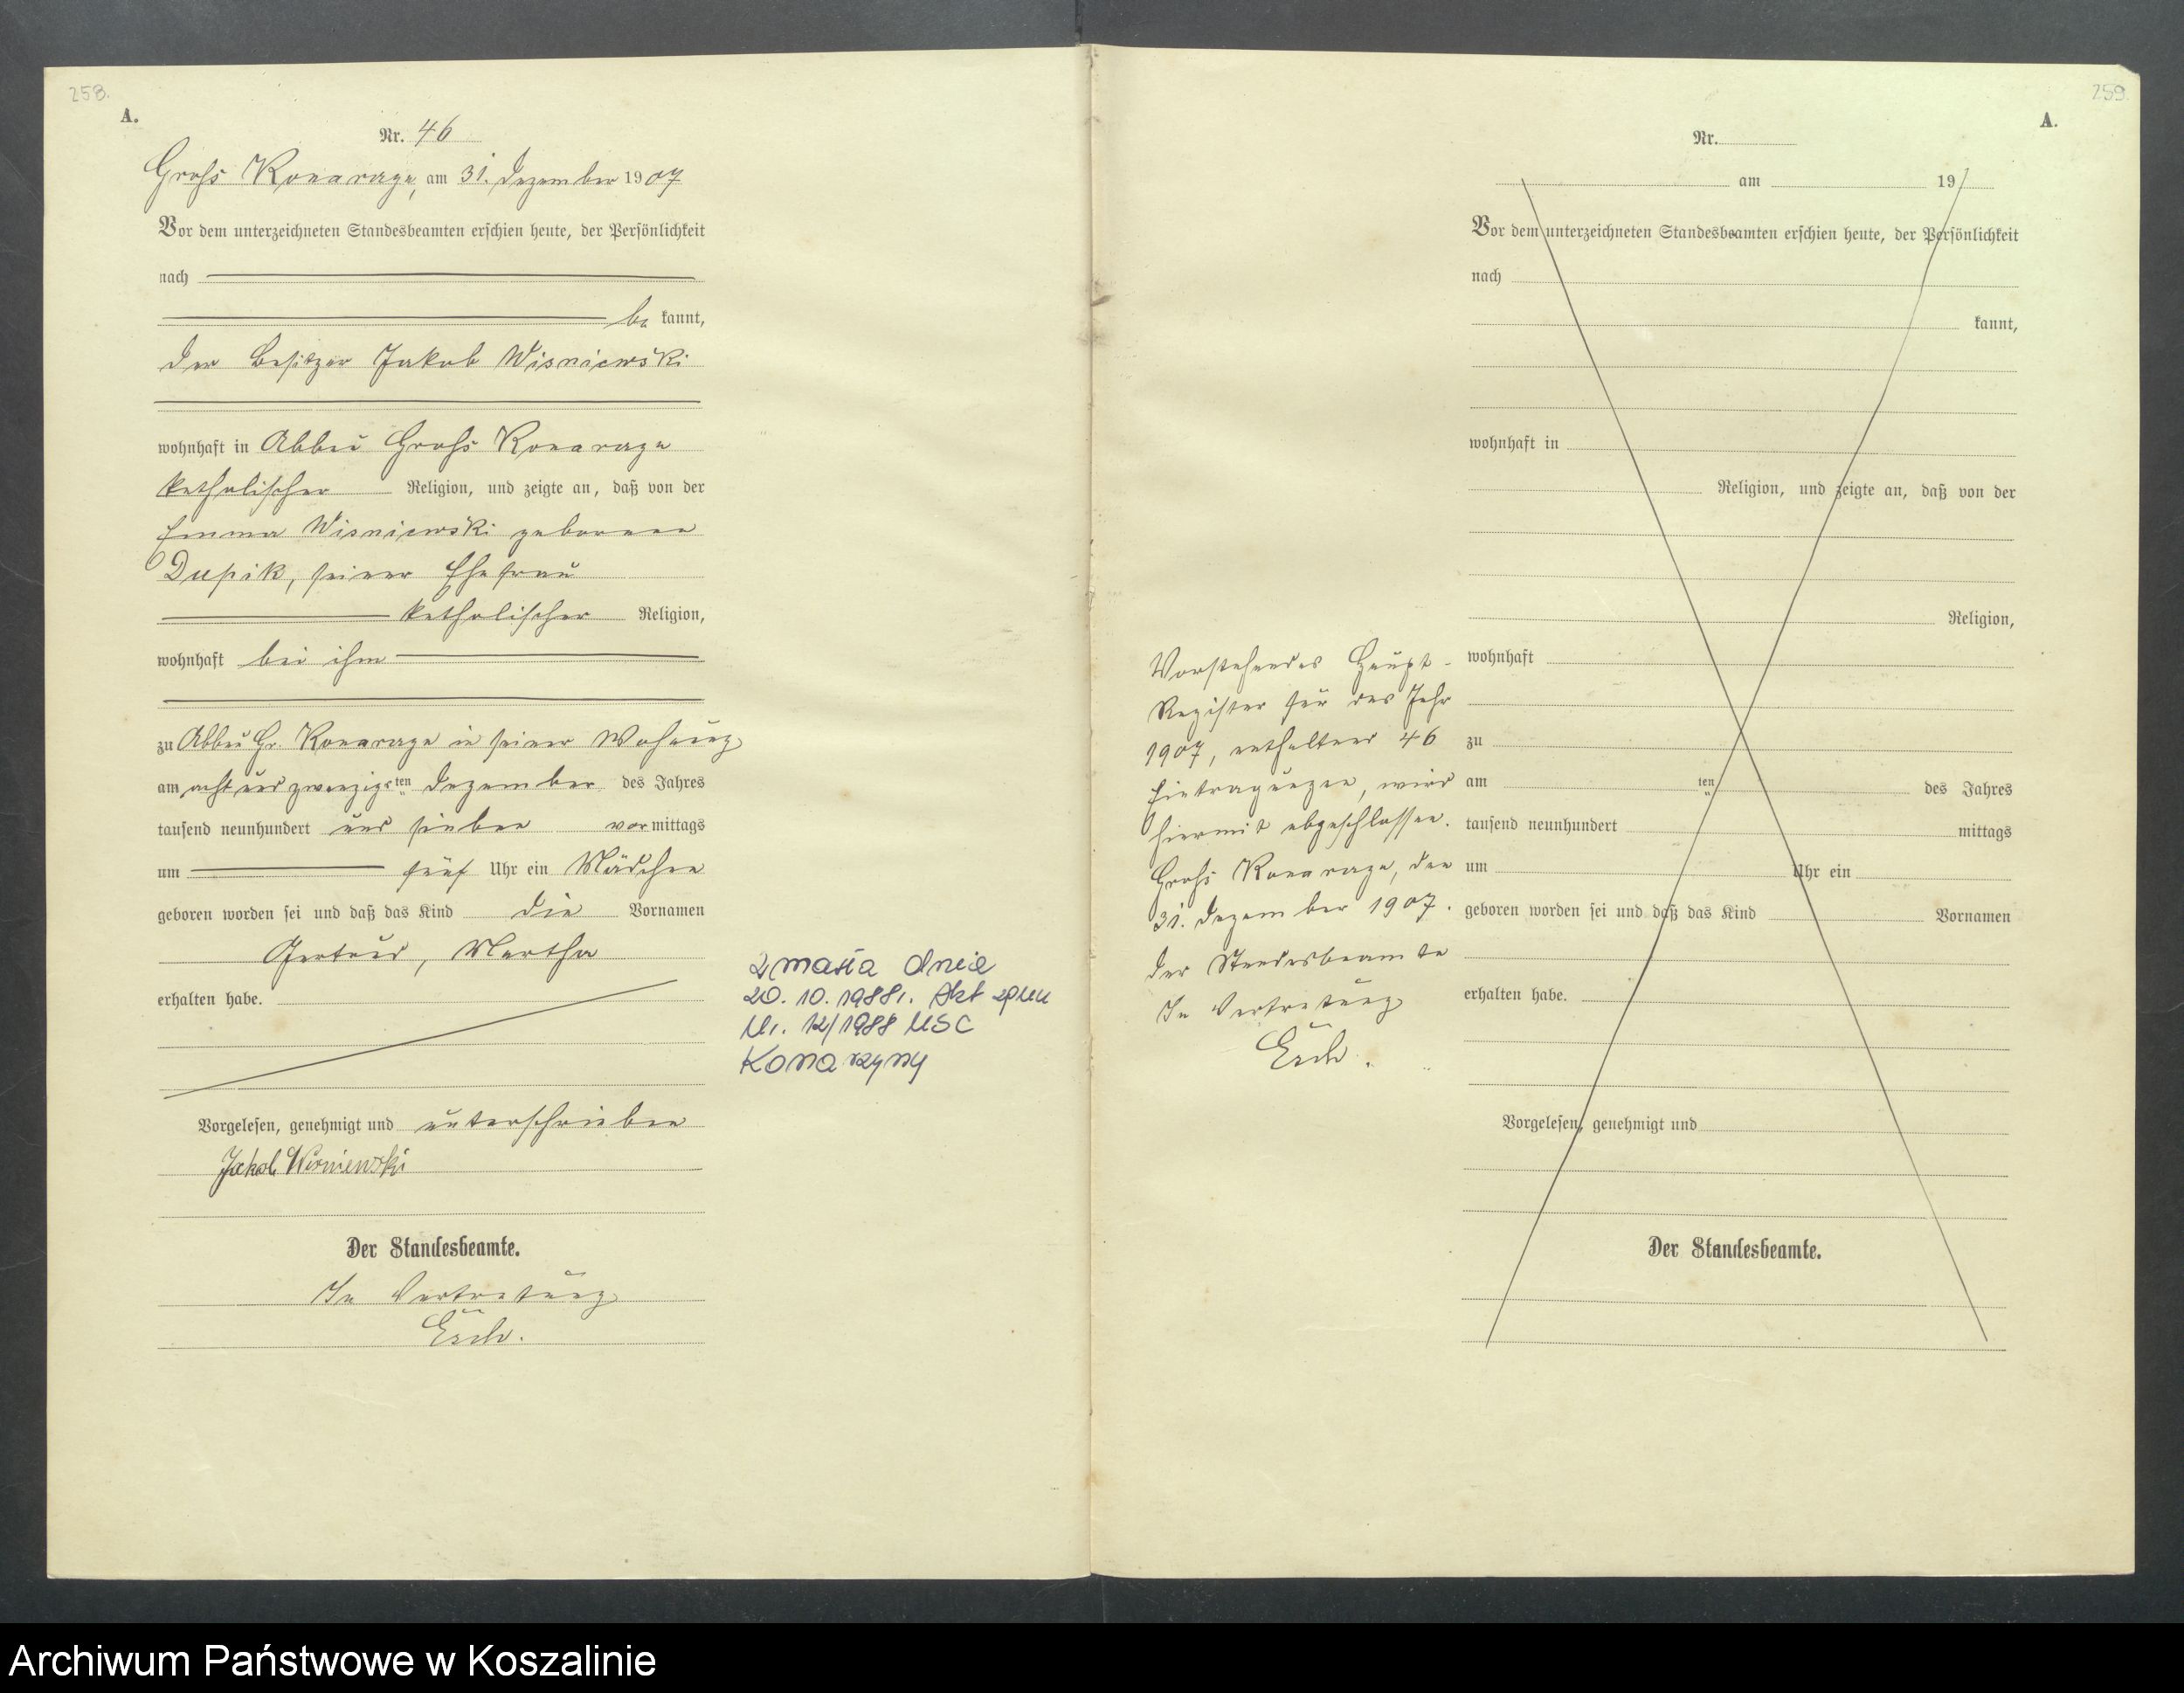 258.
A.
Nr. 46
Groß Konarzyn, am 31. Dezember 1907
Vor dem unterzeichneten Standesbeamten erschien heute, der Persönlichkeit
nach
be kannt,
der Besitzer Jakob Wisniewski
wohnhaft in Abbau Groß
katholischer Religion, und zeigte an, daß von der
Emma Wisniewski geborenen
seiner Ehefrau
katholischer Religion,
wohnhaft bei ihm
zu Abbau Gr. in seiner Wohnung
am acht und zwanzigsten Dezember des Jahres
tausend neunhundert und sieben vormittags
um fünf Uhr ein Mädchen
geboren worden sei und daß das Kind die Vornamen
Gertrud, Martha
erhalten habe.
Vorgelesen, genehmigt und unterschrieben
Jakob Wisniewski
Der Standesbeamte.
In Vertretung
zmarła dnia
20. 10. 1988r. Akt zgonu
Nr. 12/1988 USC
Konarzyny
259.
A.
Nr.
am 19
Vor dem unterzeichneten Standesbeamten erschien heute, der Persönlichkeit
nach
kannt,
wohnhaft in
Religion, und zeigte an, daß von der
Religion,
wohnhaft
zu
am ten des Jahres
tausend neunhundert mittags
um Uhr ein
geboren worden sei und daß das Kind Vornamen
erhalten habe.
Vorgelesen, genehmigt und
Der Standesbeamte.
Vorstehendes Haupt-
Register für das Jahr
1907, enthaltend 46
Eintragungen, wird
hiermit abgeschlossen.
Groß den
31. Dezember 1907.
Der Standesbeamte
In Vertretung
Archiwum Państwowe w Koszalinie